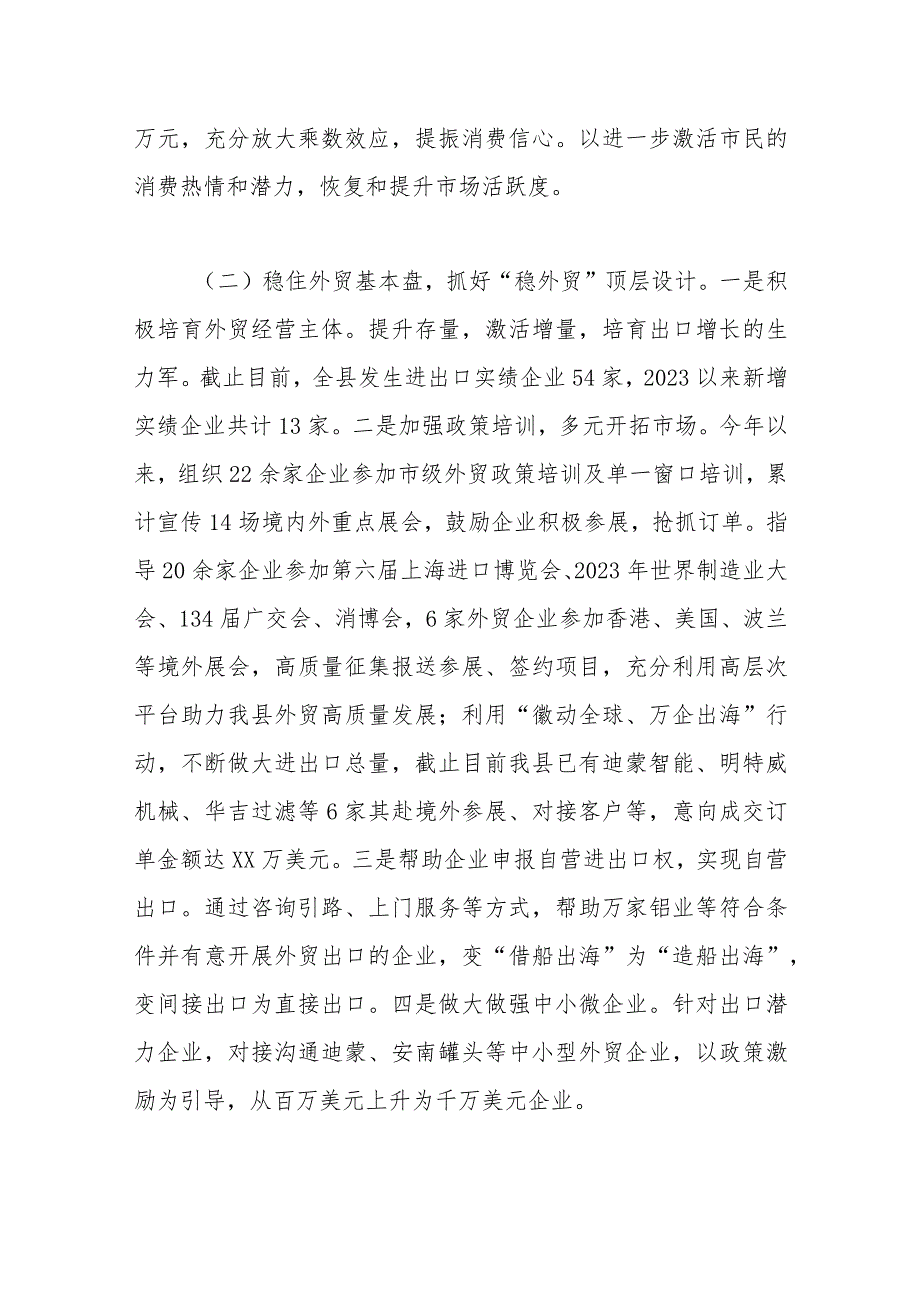 万元，充分放大乘数效应，提振消费信心。以进一步激活市民的
消费热情和潜力，恢复和提升市场活跃度。
（二）稳住外贸基本盘，抓好“稳外贸”顶层设计。一是积
极培育外贸经营主体。提升存量，激活增量，培育出口增长的生
力军。截止目前，全县发生进出口实绩企业 54 家，2023 以来新增
实绩企业共计 13 家。二是加强政策培训，多元开拓市场。今年以
来，组织 22 余家企业参加市级外贸政策培训及单一窗口培训，累
计宣传 14 场境内外重点展会，鼓励企业积极参展，抢抓订单。指
导 20 余家企业参加第六届上海进口博览会、2023 年世界制造业大
会、134 届广交会、消博会，6 家外贸企业参加香港、美国、波兰
等境外展会，高质量征集报送参展、签约项目，充分利用高层次
平台助力我县外贸高质量发展；利用“徽动全球、万企出海”行
动，不断做大进出口总量，截止目前我县已有迪蒙智能、明特威
机械、华吉过滤等 6 家其赴境外参展、对接客户等，意向成交订
单金额达 XX 万美元。三是帮助企业申报自营进出口权，实现自营
出口。通过咨询引路、上门服务等方式，帮助万家铝业等符合条
件并有意开展外贸出口的企业，变“借船出海”为“造船出海”，
变间接出口为直接出口。四是做大做强中小微企业。针对出口潜
力企业，对接沟通迪蒙、安南罐头等中小型外贸企业，以政策激
励为引导，从百万美元上升为千万美元企业。